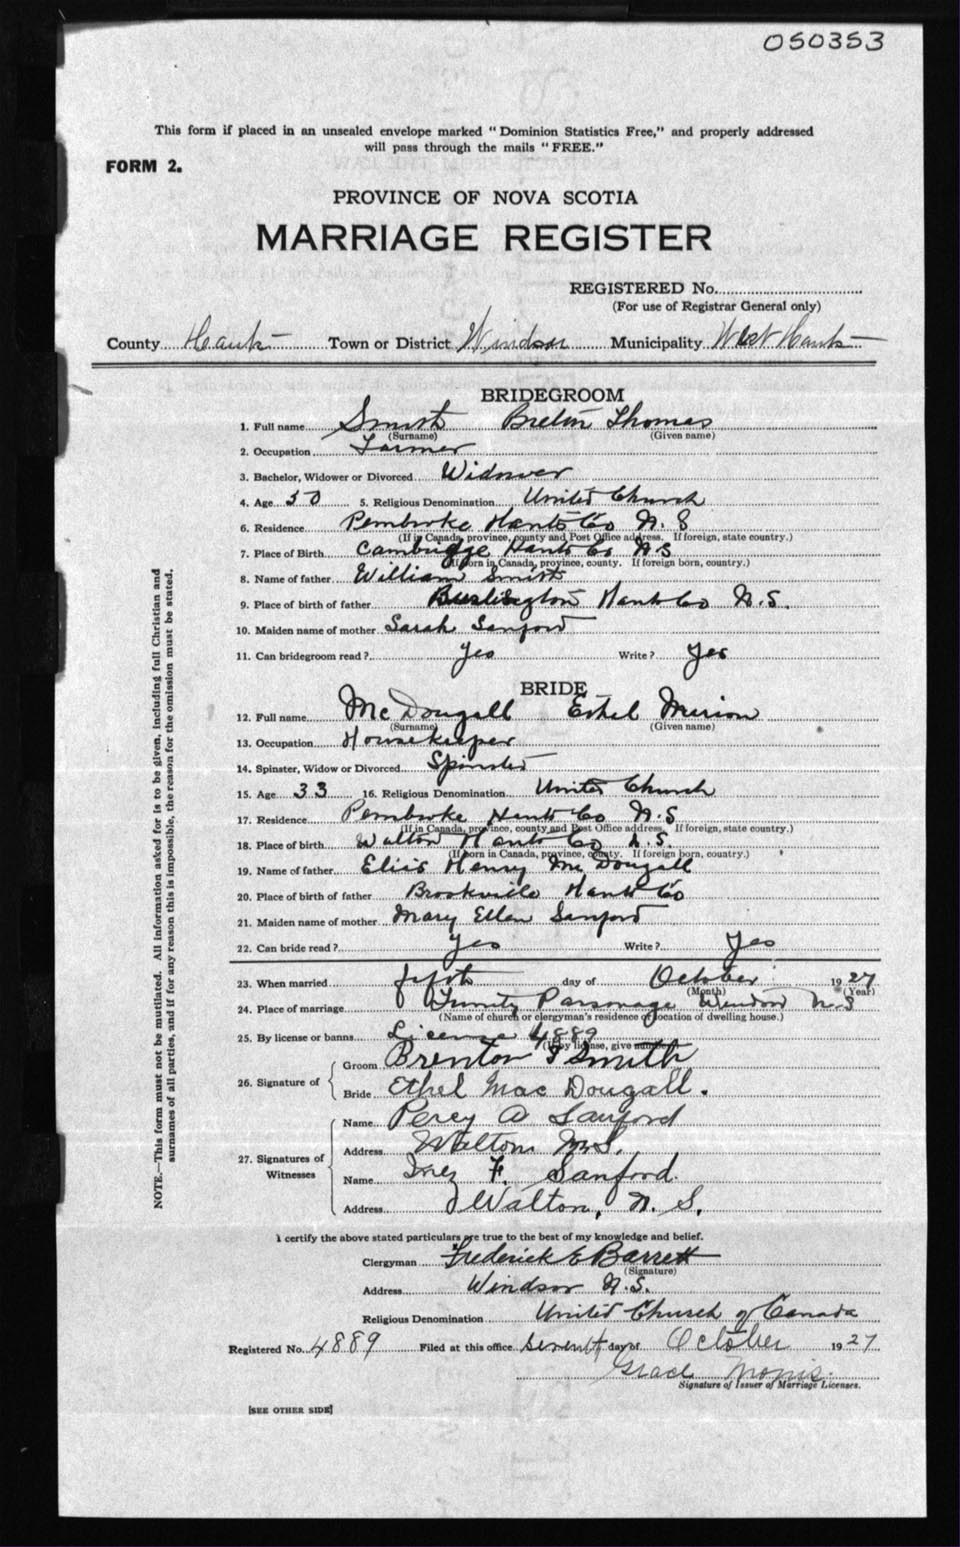 050353
This form if placed in an unsealed envelope marked "Dominion Statistics Free," and properly addressed
will pass through the mails "FREE."
FORM 2.
PROVINCE OF NOVA SCOTIA
MARRIAGE REGISTER
REGISTERED No.
(For use of Registrar General only)
County Hants Town or District Windsor Municipality West Hants
BRIDEGROOM
1. Full name Smith Breton Thomas
(Surname) (Given name)
2. Occupation Farmer
3. Bachelor, Widower or Divorced Widower
4. Age 50 5. Religious Denomination United Church
6. Residence Pembroke Hants Co N. S
(If in Canada, province, county and Post Office address. If foreign, state country.)
7. Place of Birth Cambridge Hants Co N S
(If born in Canada, province, county. If foreign born, country.)
8. Name of father William Smith
9. Place of birth of father Burlington Hants Co N. S.
10. Maiden name of mother Sarah Sanford
11. Can bridegroom read? Yes Write? Yes
BRIDE
12. Full name McDougall Ethel Merion
(Surname) (Given name)
13. Occupation Housekeeper
14. Spinster, Widow or Divorced Spinster
15. Age 33 16. Religious Denomination United Church
17. Residence Pembroke Hants Co N. S
(If in Canada, province, county and Post Office address. If foreign, state country.)
18. Place of birth Walton Hants Co N. S.
(If born in Canada, province, county. If foreign born, country.)
19. Name of father Elias Henry McDougall
20. Place of birth of father Brookville Hants Co
21. Maiden name of mother Mary Ellen Sanford
22. Can bride read? Yes Write? Yes
23. When married fifth day of October 1927
(Month) (Year)
24. Place of marriage Trinity Parsonage Windsor N S
(Name of church or clergyman's residence or location of dwelling house.)
25. By license or banns License 4889
(If by license, give number)
26. Signature of Groom Brenton T Smith
Bride Ethel Mac Dougall.
27. Signatures of Witnesses
Name Percy A Sanford
Address Walton N.S.
Name Inez F. Sanford.
Address Walton, N. S.
I certify the above stated particulars are true to the best of my knowledge and belief.
Clergyman Frederick E Barrett
(Signature)
Address Windsor N.S.
Religious Denomination United Church of Canada
Registered No. 4889 Filed at this office seventh day of October 1927
Grace
Signature of Issuer of Marriage Licenses.
[SEE OTHER SIDE]
NOTE.—This form must not be mutilated. All information asked for is to be given, including full Christian and
surnames of all parties, and if for any reason this is impossible, the reason for the omission must be stated.